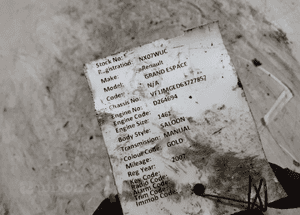 Stock No:
Registration: NX07WUC
Make: Renault
Model: GRAND ESPACE
Code: N/A
Chassis No:
Engine No: D264094
Engine Code:
Engine Size: 1461
Body Style: SALOON
Transmission: MANUAL
Colour Code: GOLD
Mileage:
Reg Year: 2007
Key Code:
Radio Code:
Alarm Code:
Trim Code:
Immob Code: